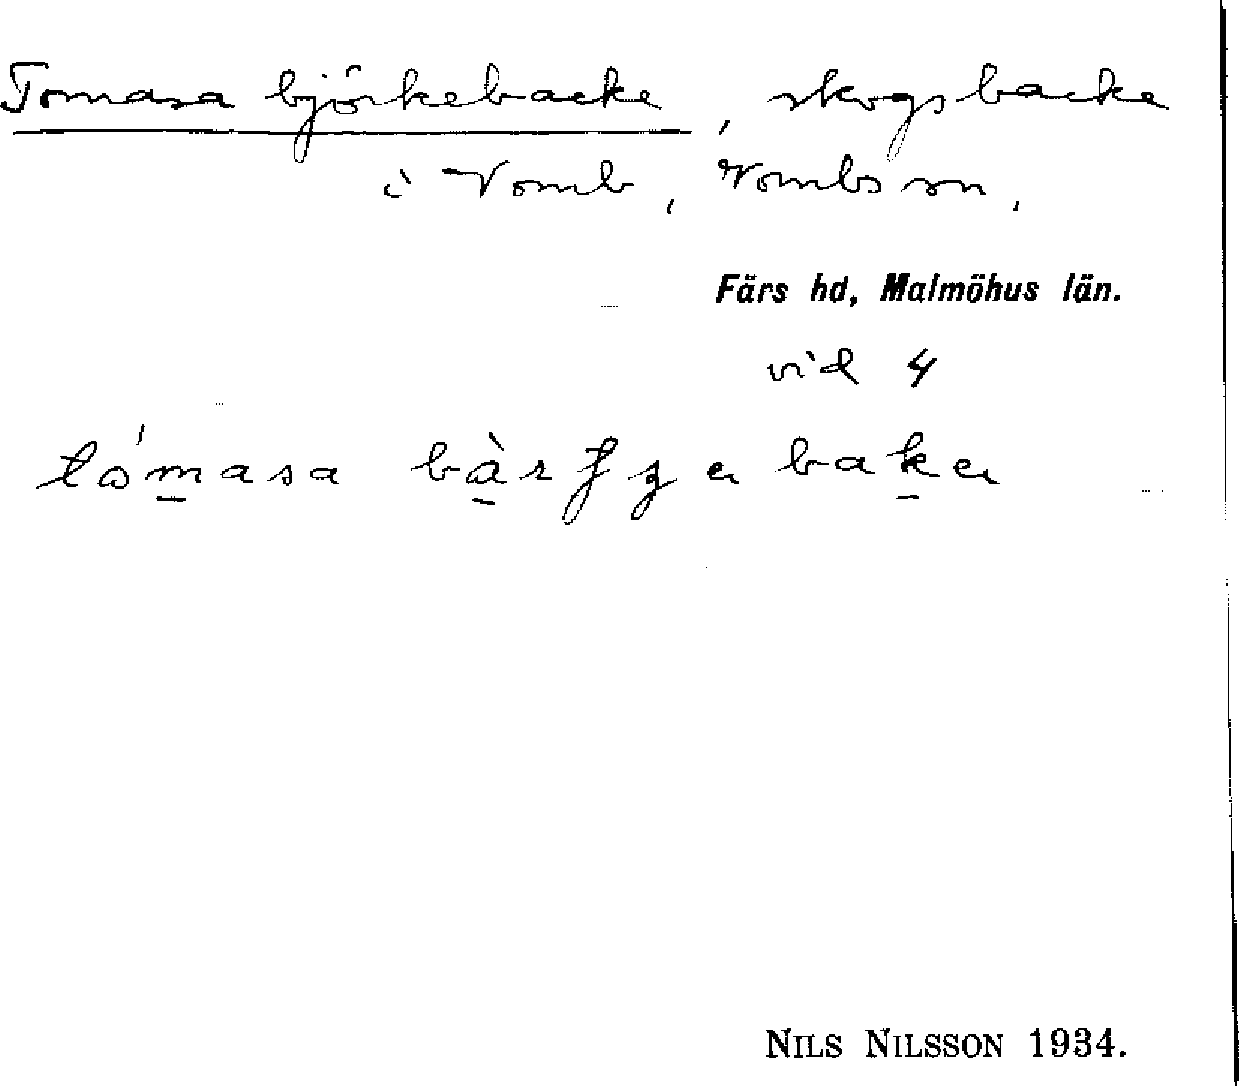 Tomasa björkebacke, skogsbacke
i Vomb, Vombs sn,
Färs hd, Malmöhus län.
vid 4
tómasa
NILS NILSSON 1934.